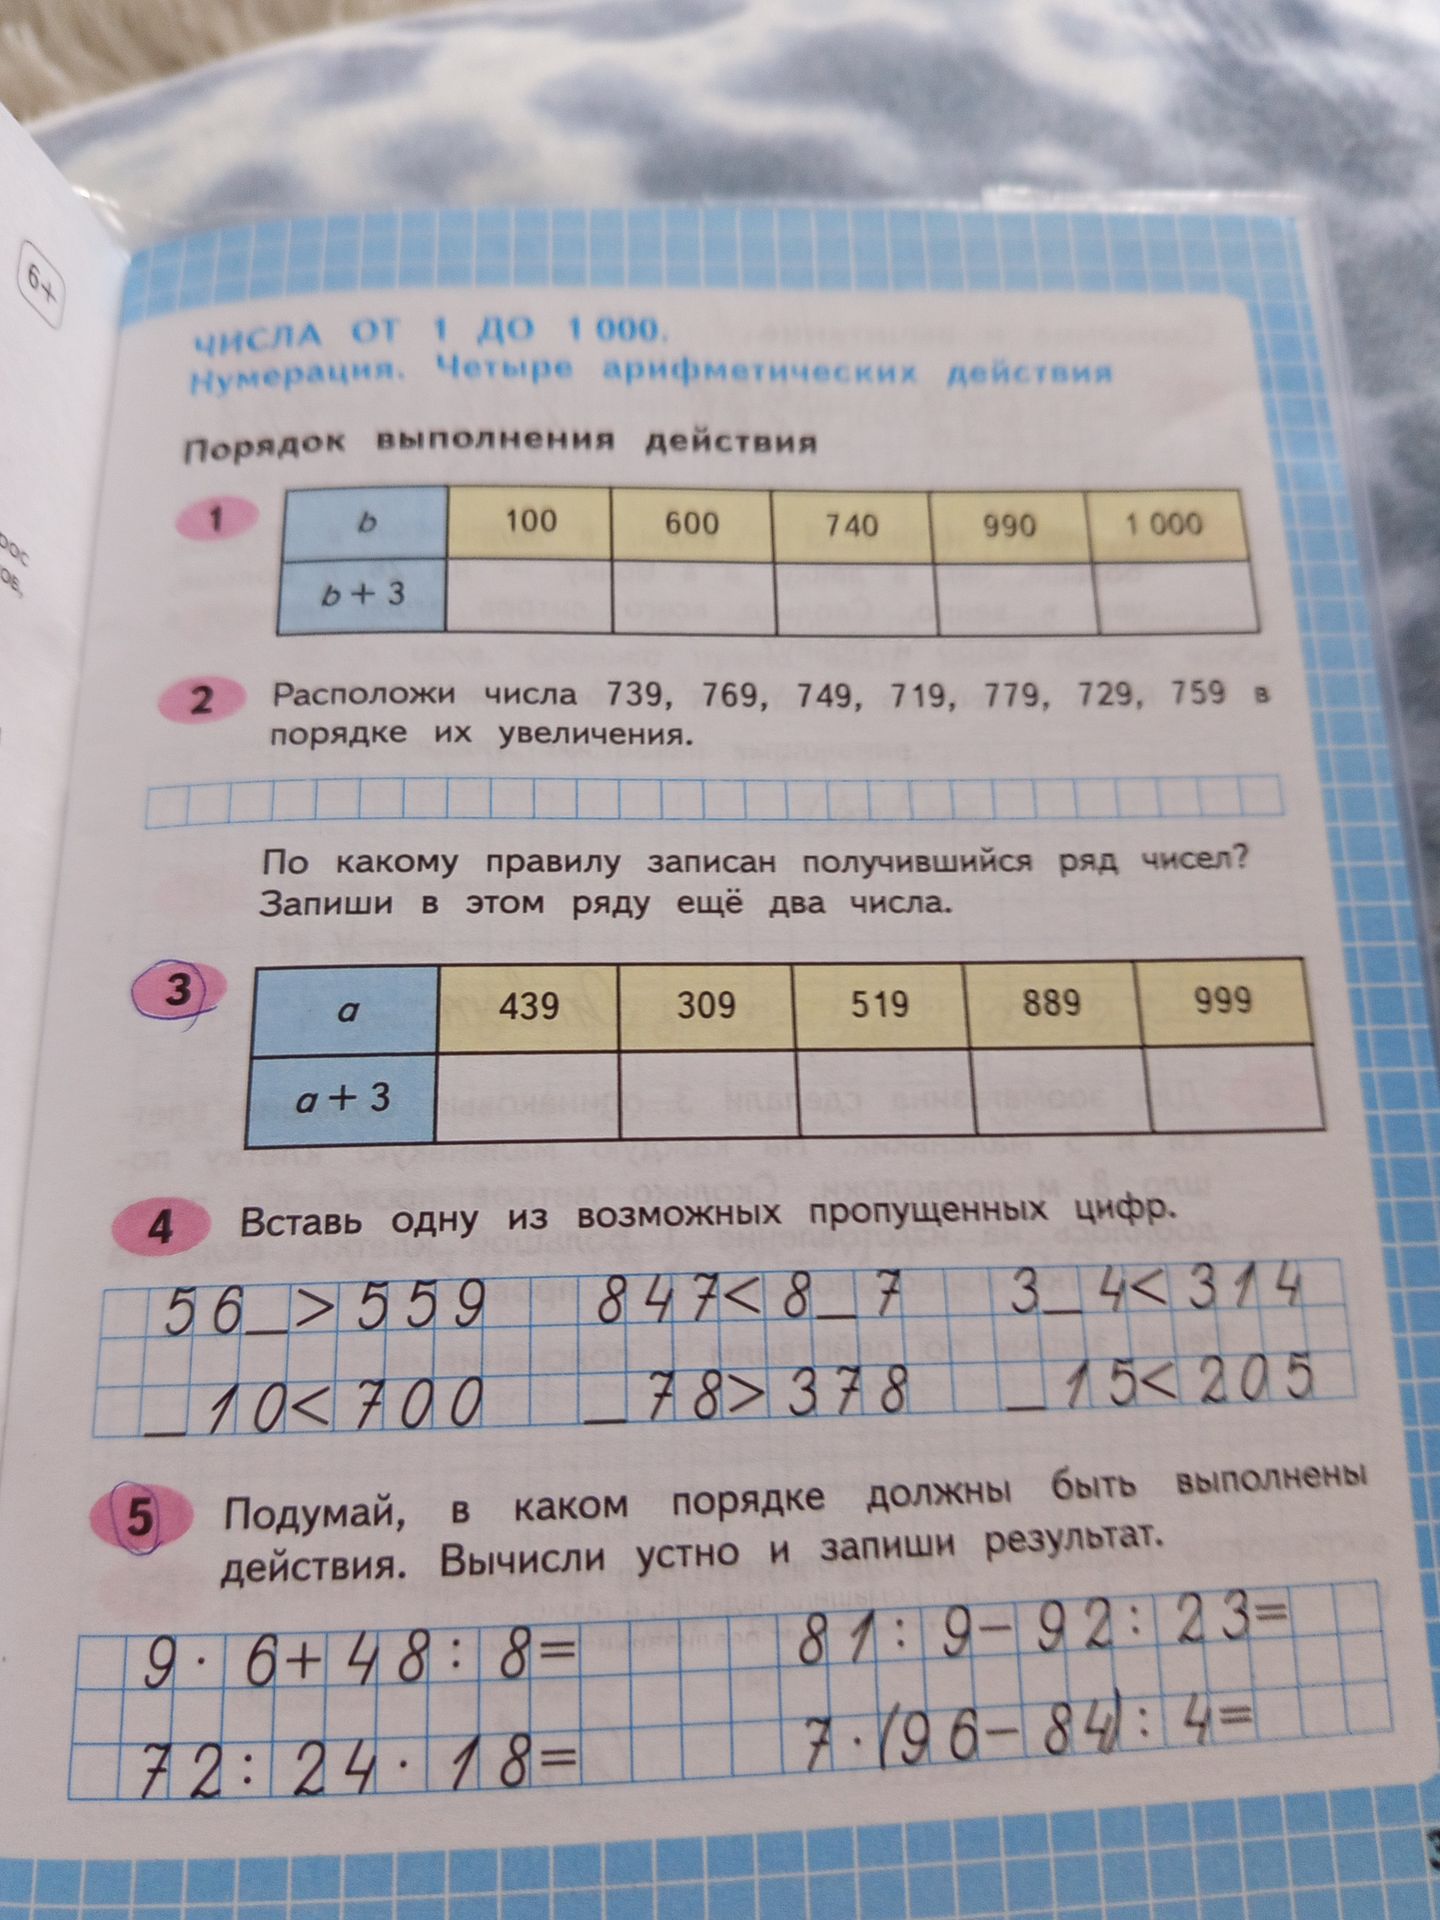 6+
ЧИСЛА ОТ 1 ДО 1 000.
Нумерация. Четыре арифметических действия
Порядок выполнения действия
1 b 100 600 740 990 1 000
b + 3
2 Расположи числа 739, 769, 749, 719, 779, 729, 759 в
порядке их увеличения.
По какому правилу записан получившийся ряд чисел?
Запиши в этом ряду ещё два числа.
3 a 439 309 519 889 999
a + 3
4 Вставь одну из возможных пропущенных цифр.
56_>559 847<8_7 3_4<314
_10<700 _78>378 _15<205
5 Подумай, в каком порядке должны быть выполнены
действия. Вычисли устно и запиши результат.
9·6+48:8= 81:9−92:23=
72:24·18= 7·(96−84):4=